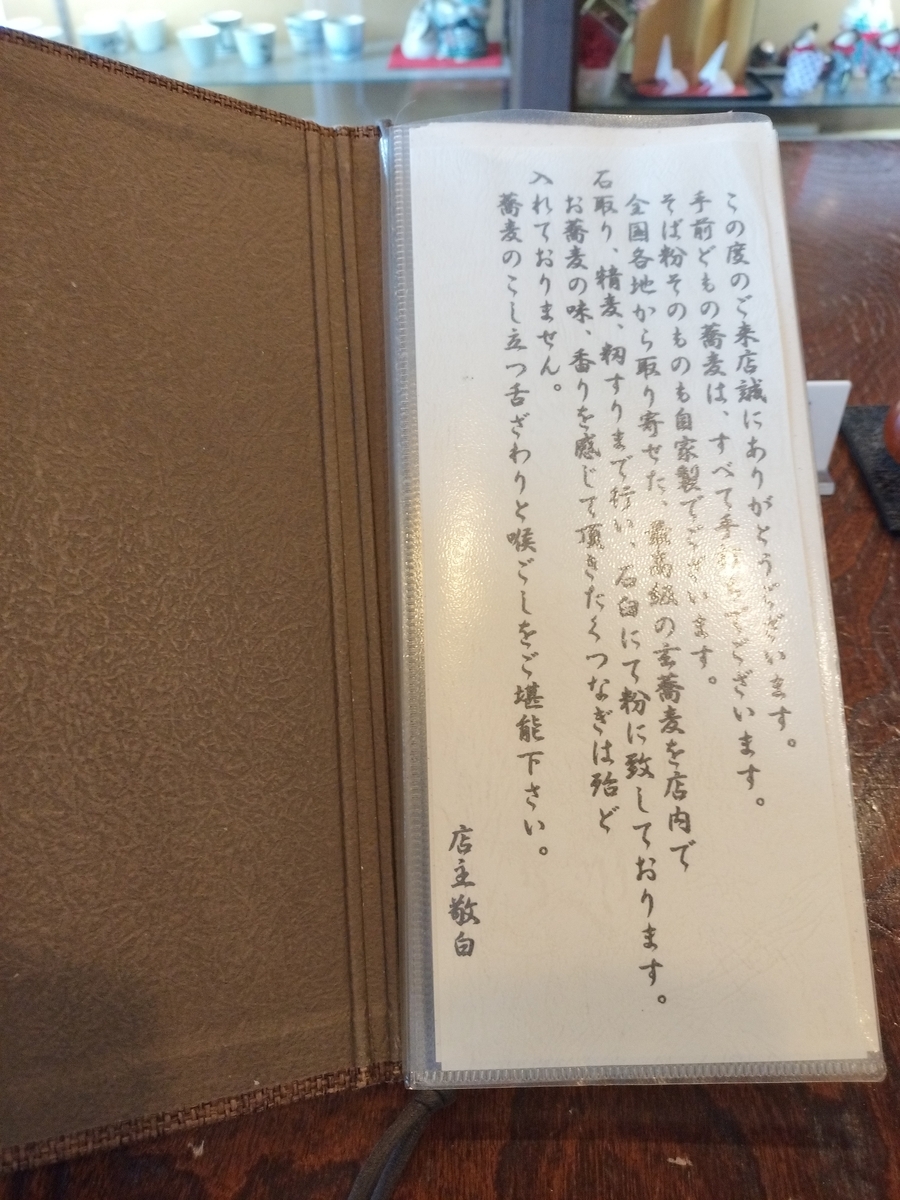 この度のご来店誠にありがとうございます。
手前どもの蕎麦は、すべて手打ちでございます。
そば粉そのものも自家製でございます。
全国各地から取り寄せた、最高級の玄蕎麦を店内で
石取り、精麦、籾すりまで行い、石臼にて粉に致しております。
お蕎麦の味、香りを感じて頂きたくつなぎは殆ど
入れておりません。
蕎麦のこし立つ舌ざわりと喉ごしをご堪能下さい。
店主敬白